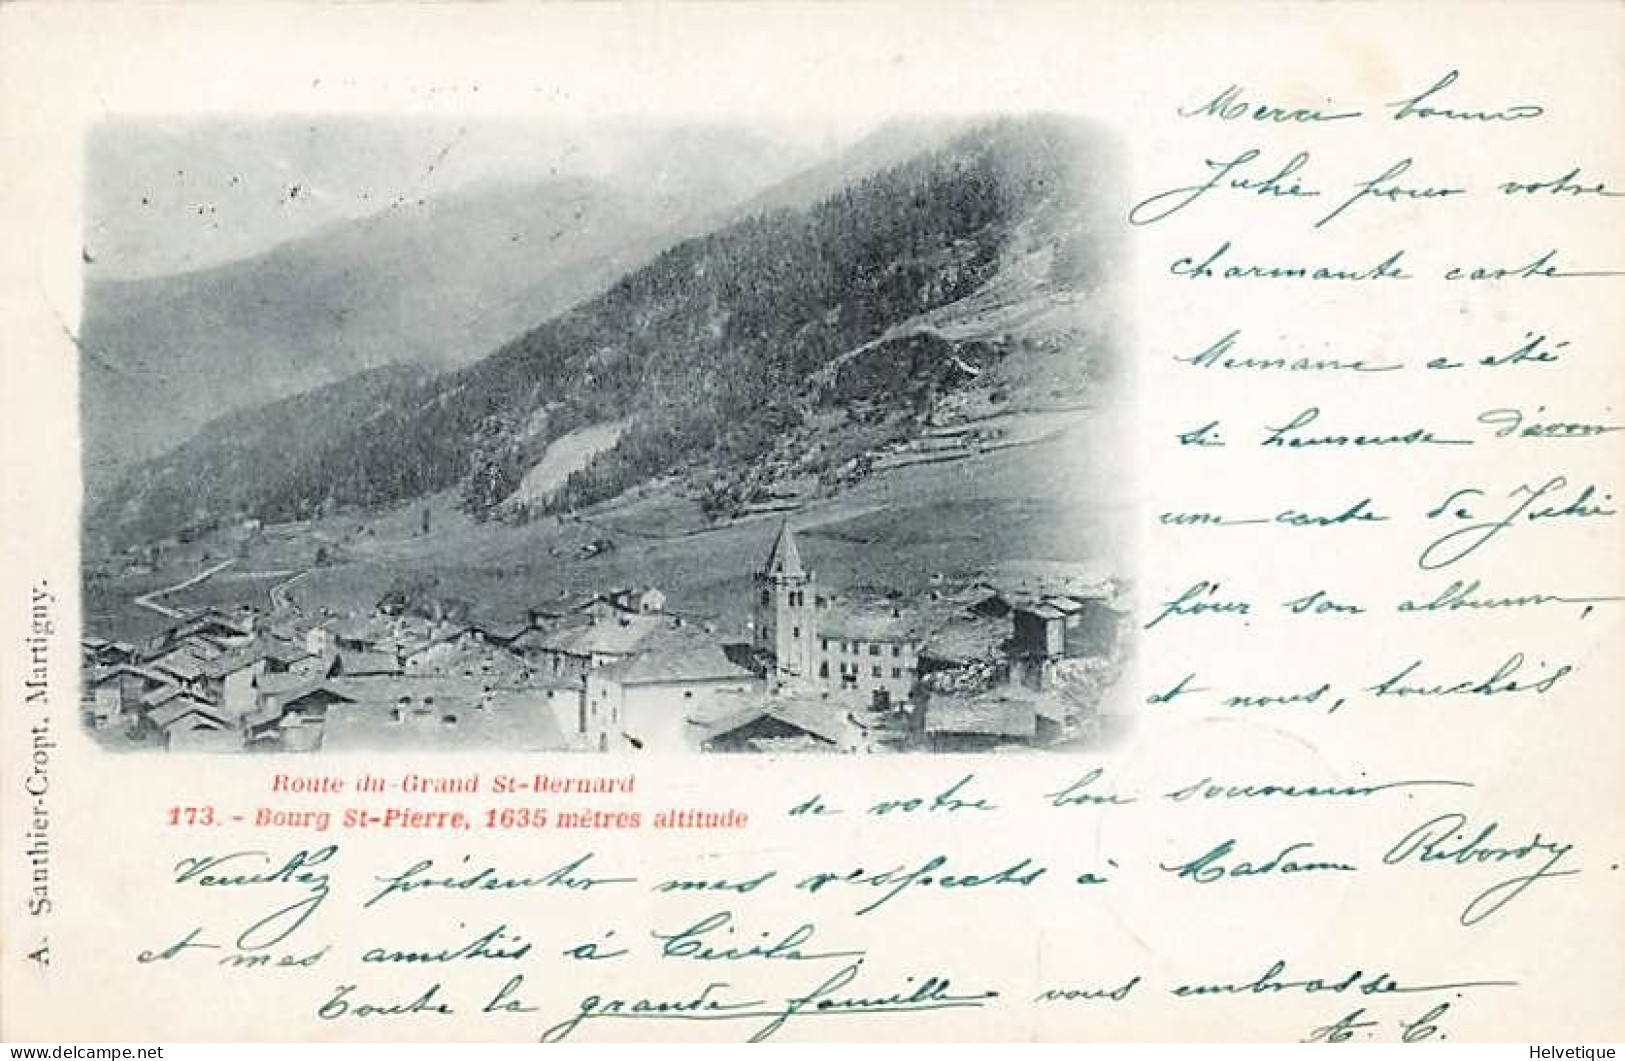 Merci bonne
Julie pour votre
charmante carte
a été
si heureuse d'avoir
une carte de Julie
pour son album,
et nous, touchés
de votre bon souvenir.
Veuillez présenter mes respects à Madame Ribordy.
et mes amitiés à Cécile.
Toute la grande famille vous embrasse.
A. C.
Route du Grand St-Bernard
173. - Bourg St-Pierre, 1635 mètres altitude
A. Sauthier-Cropt. Martigny.
delcampe.net
Helvetique